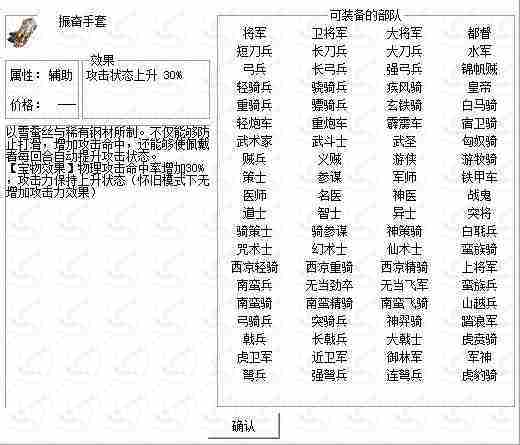 振奋手套
效果
属性： 辅助
攻击状态上升 30%
价格： ——
以雪蚕丝与稀有钢材所制。不仅能够防
止打滑，增加攻击命中，还能够使佩戴
者每回合自动提升攻击状态。
【宝物效果】物理攻击命中率增加30%
，攻击力保持上升状态（怀旧模式下无
增加攻击力效果）
可装备的部队
将军 卫将军 大将军 都督
短刀兵 长刀兵 大刀兵 水军
弓兵 长弓兵 强弓兵 锦帆贼
轻骑兵 骁骑兵 疾风骑 皇帝
重骑兵 骠骑兵 玄铁骑 白马骑
轻炮车 重炮车 霹雳车 宿卫骑
武术家 武斗士 武圣 匈奴骑
贼兵 义贼 游侠 游牧骑
策士 参谋 军师 铁甲车
医师 名医 神医 战鬼
道士 智士 异士 突将
骑策士 骑参谋 神策骑 白毦兵
咒术士 幻术士 仙术士 蛮族骑
西凉轻骑 西凉重骑 西凉精骑 上将军
南蛮兵 无当劲卒 无当飞军 蛮族兵
南蛮骑 南蛮精骑 南蛮飞骑 山越兵
弓骑兵 突骑兵 神羿骑 踏浪军
戟兵 长戟兵 大戟士 虎贲骑
虎卫军 近卫军 御林军 军神
弩兵 强弩兵 连弩兵 虎豹骑
确认